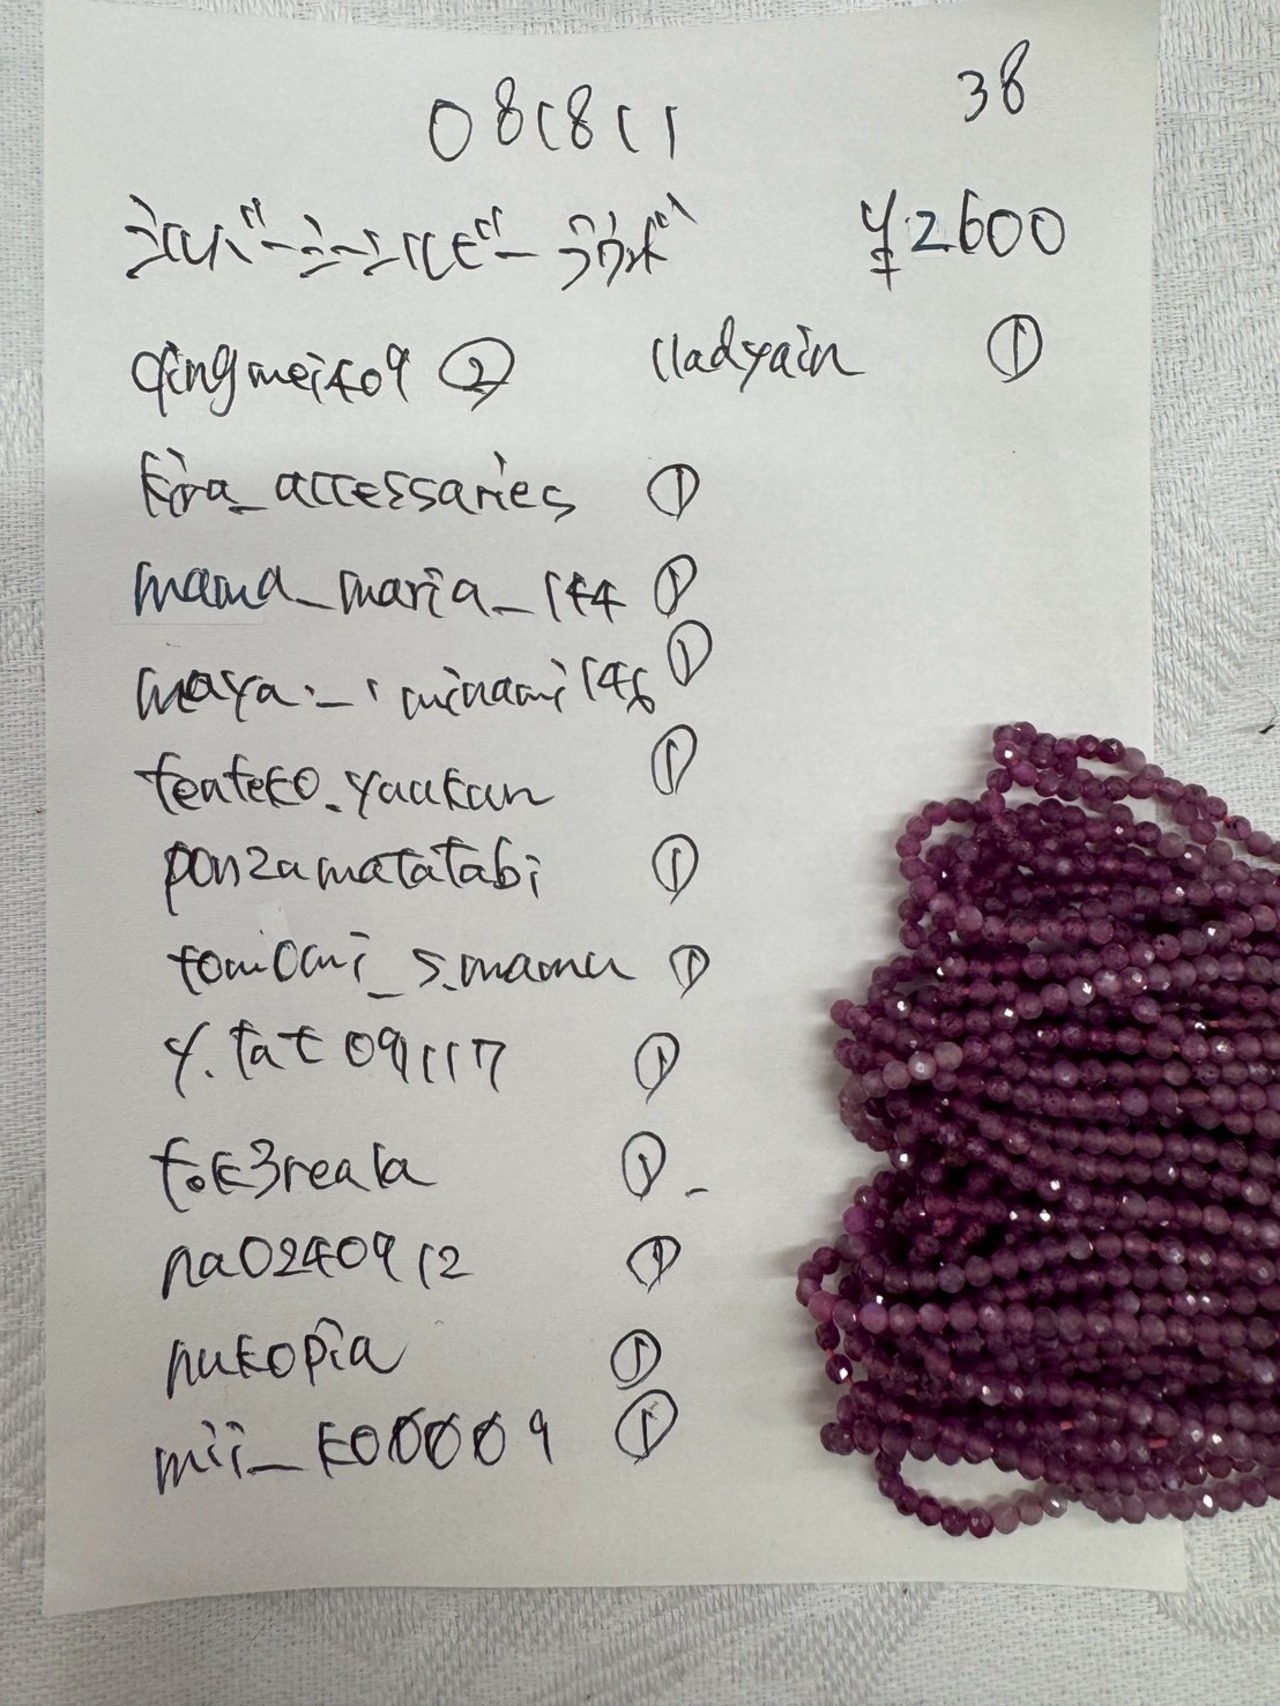 081811 38
シルバーシーンルビーラウンド ¥2600
qingmeiko9 ② lladyain ①
kira_accessaries ①
mama_maria_144 ①
maya._.minami146 ①
teateko.yuukun ①
ponzamatatabi ①
tomiomi_s.mama ①
y.tat091117 ①
t.k3reala ①
na0240912 ①
nukopia ①
mii_k00009 ①